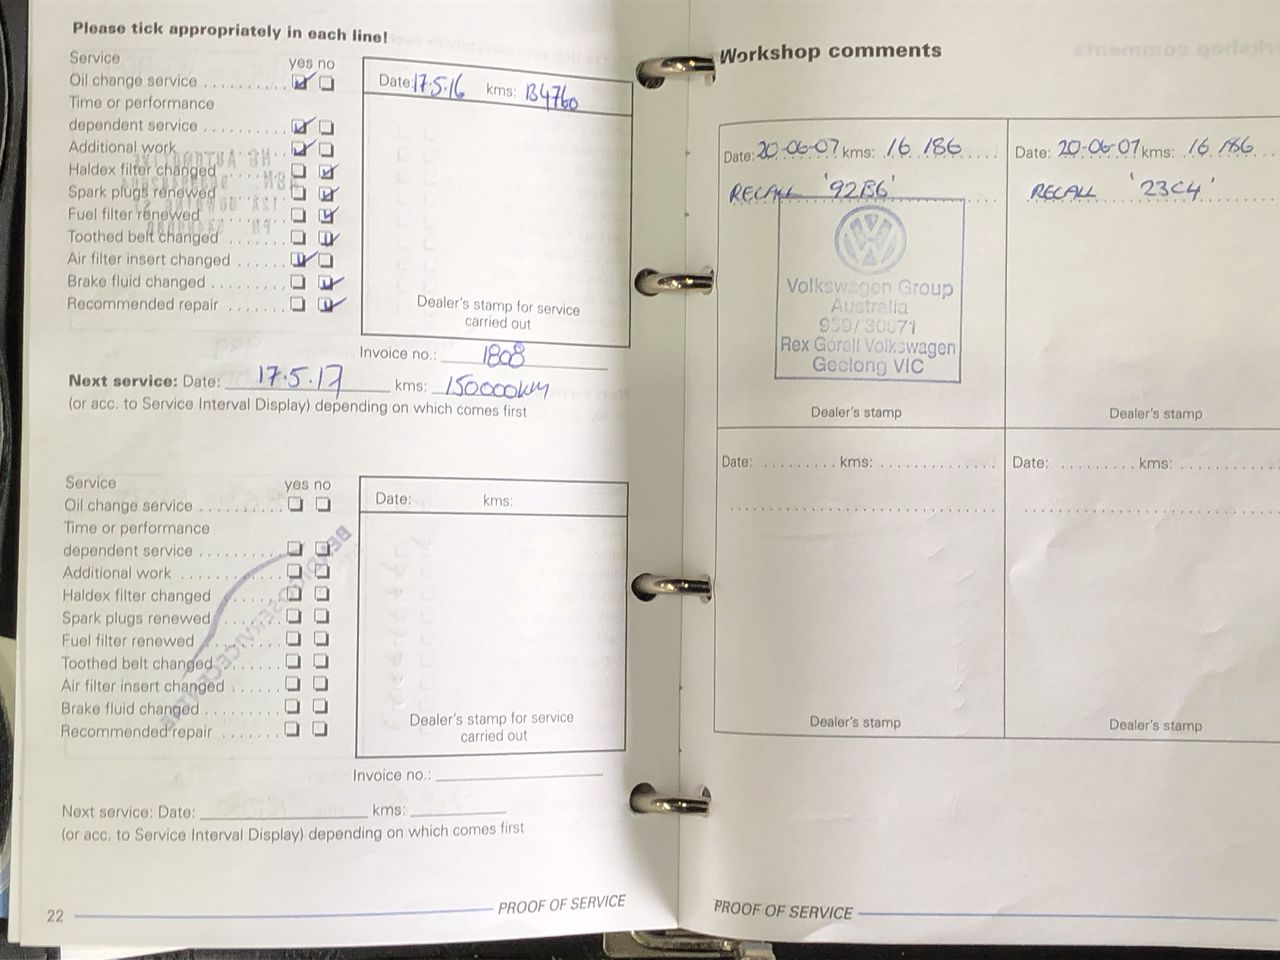 Please tick appropriately in each line!
Service yes no
Oil change service
Time or performance
dependent service
Additional work
Haldex filter changed
Spark plugs renewed
Fuel filter renewed
Toothed belt changed
Air filter insert changed
Brake fluid changed
Recommended repair
Date: 17.5.16 kms: 134760
Dealer's stamp for service
carried out
Invoice no.: 1808
Next service: Date: 17.5.17 kms: 150000KM
(or acc. to Service Interval Display) depending on which comes first
Service yes no
Oil change service
Time or performance
dependent service
Additional work
Haldex filter changed
Spark plugs renewed
Fuel filter renewed
Toothed belt changed
Air filter insert changed
Brake fluid changed
Recommended repair
Date: kms:
Dealer's stamp for service
carried out
Invoice no.:
Next service: Date: kms:
(or acc. to Service Interval Display) depending on which comes first
22 PROOF OF SERVICE
Workshop comments
Date: 20-06-07 kms: 16 186
RECALL '92B6'
Volkswagen Group
Australia
Rex Gorell Volkswagen
Geelong VIC
Dealer's stamp
Date: 20-06-07 kms: 16 186
RECALL '23C4'
Dealer's stamp
Date: kms:
Dealer's stamp
Date: kms:
Dealer's stamp
PROOF OF SERVICE